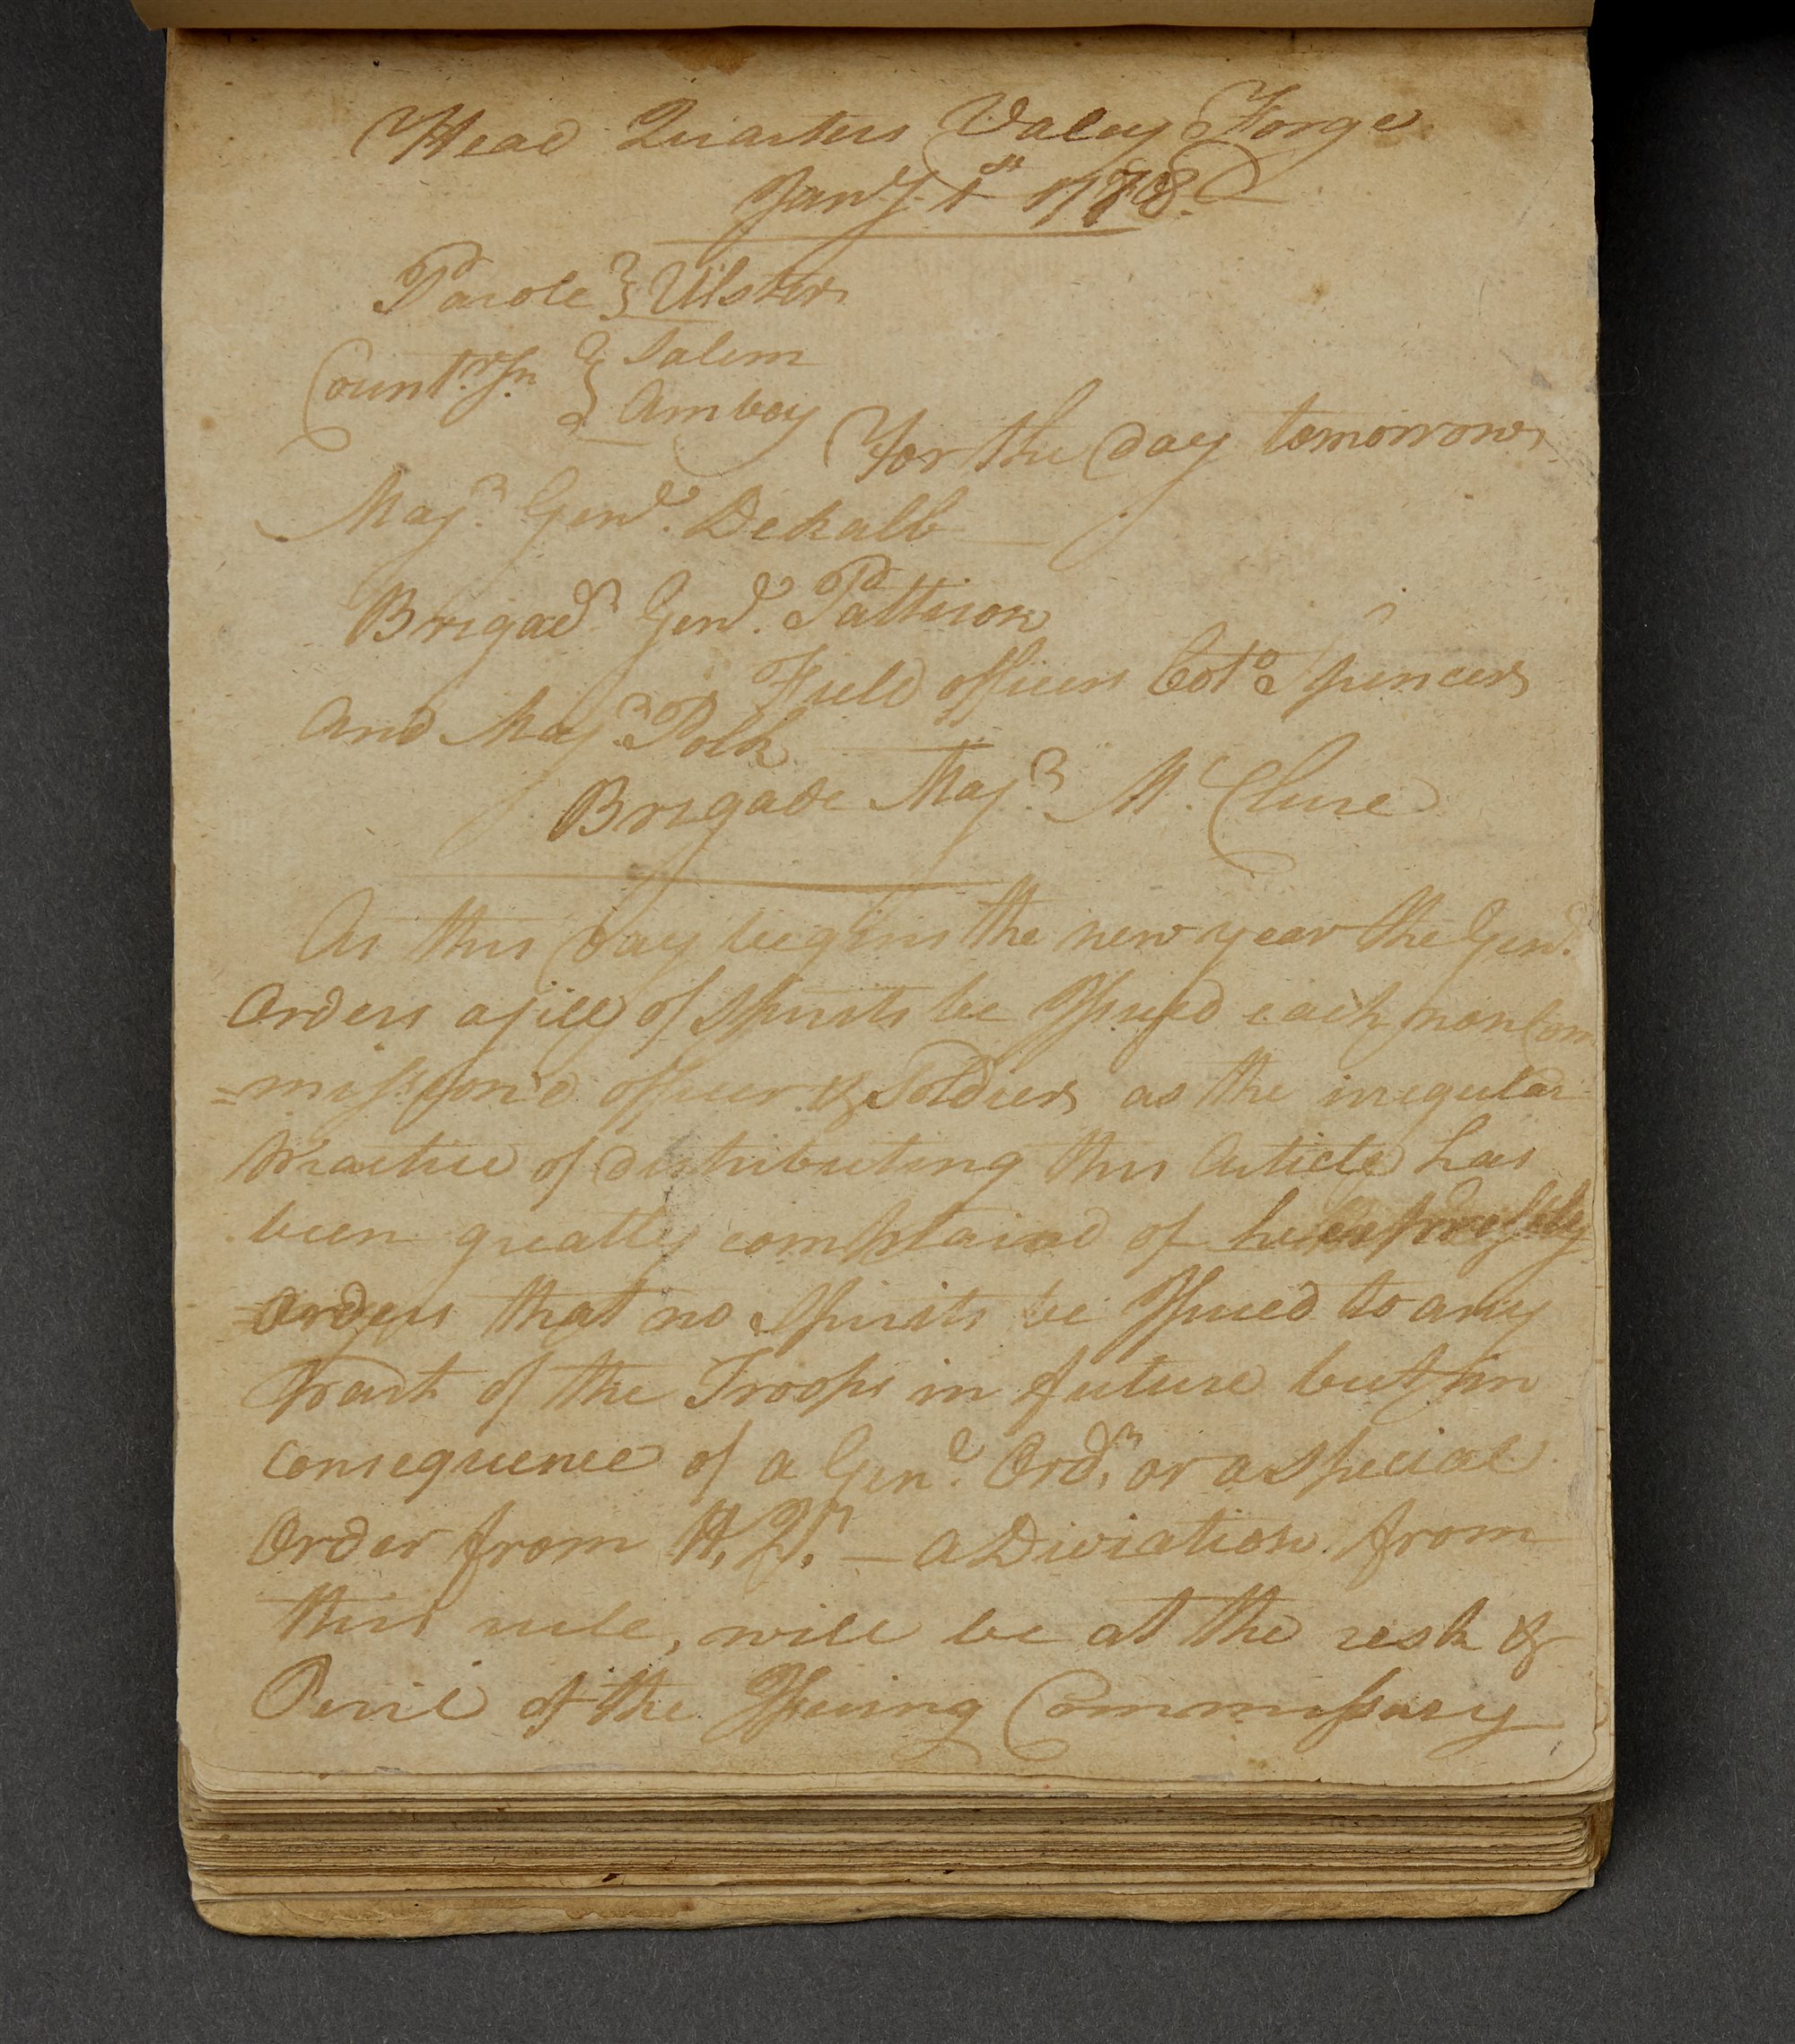 Head Quarters Valey Forge
Jany. 1st 1778.
Parole } Ulster
Countr.Sn } Salem
Amboy
For the day tomorrow
Majr. Genl. Dekalb
Brigadr. Genl. Pattison
Field officers Colo. Spencer
And Majr. Polk
Brigade Majr. Mc.Clure
As this Day begins the new year the Genl.
Orders a jill of Spirits be Issued each non Com
=missiond officer & Soldier as the irregular
Practice of distributing this Article has
been greatly complaind of he expressly
Orders that no Spirits be Issued to any
Part of the Troops in future but in
consequence of a Genl. Ordr. or a special
Order from H, Qr. — a Diviation from
this rule, will be at the resk &
Peril of the Issuing Commissary